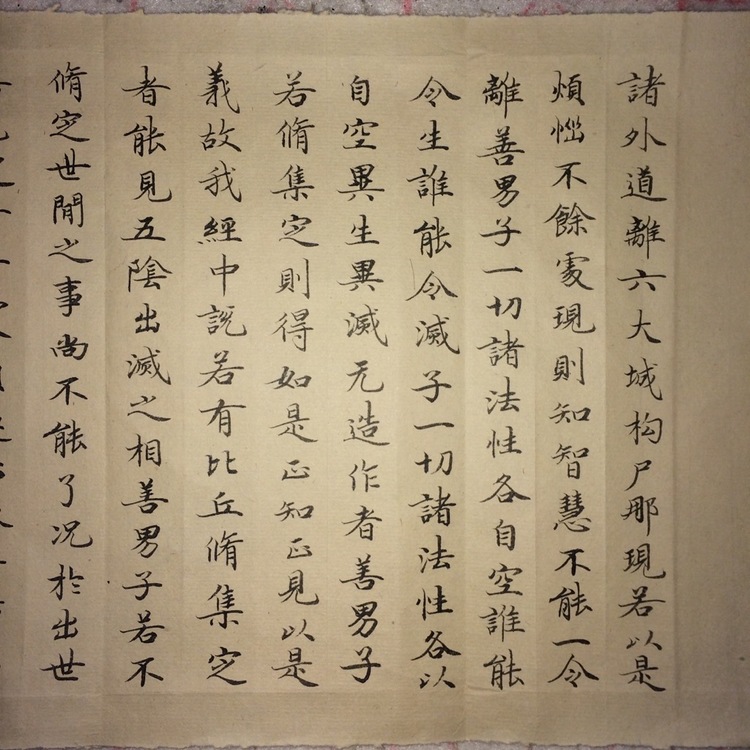 諸外道離六大城构尸那現若以是
煩惱不餘處現則知智慧不能一令
離善男子一切諸法性各自空誰能
令生誰能令滅子一切諸法性各以
自空異生異滅无造作者善男子
若脩集定則得如是正知正見以是
義故我經中說若有比丘脩集定
者能見五陰出滅之相善男子若不
脩定世間之事尚不能了況於出世